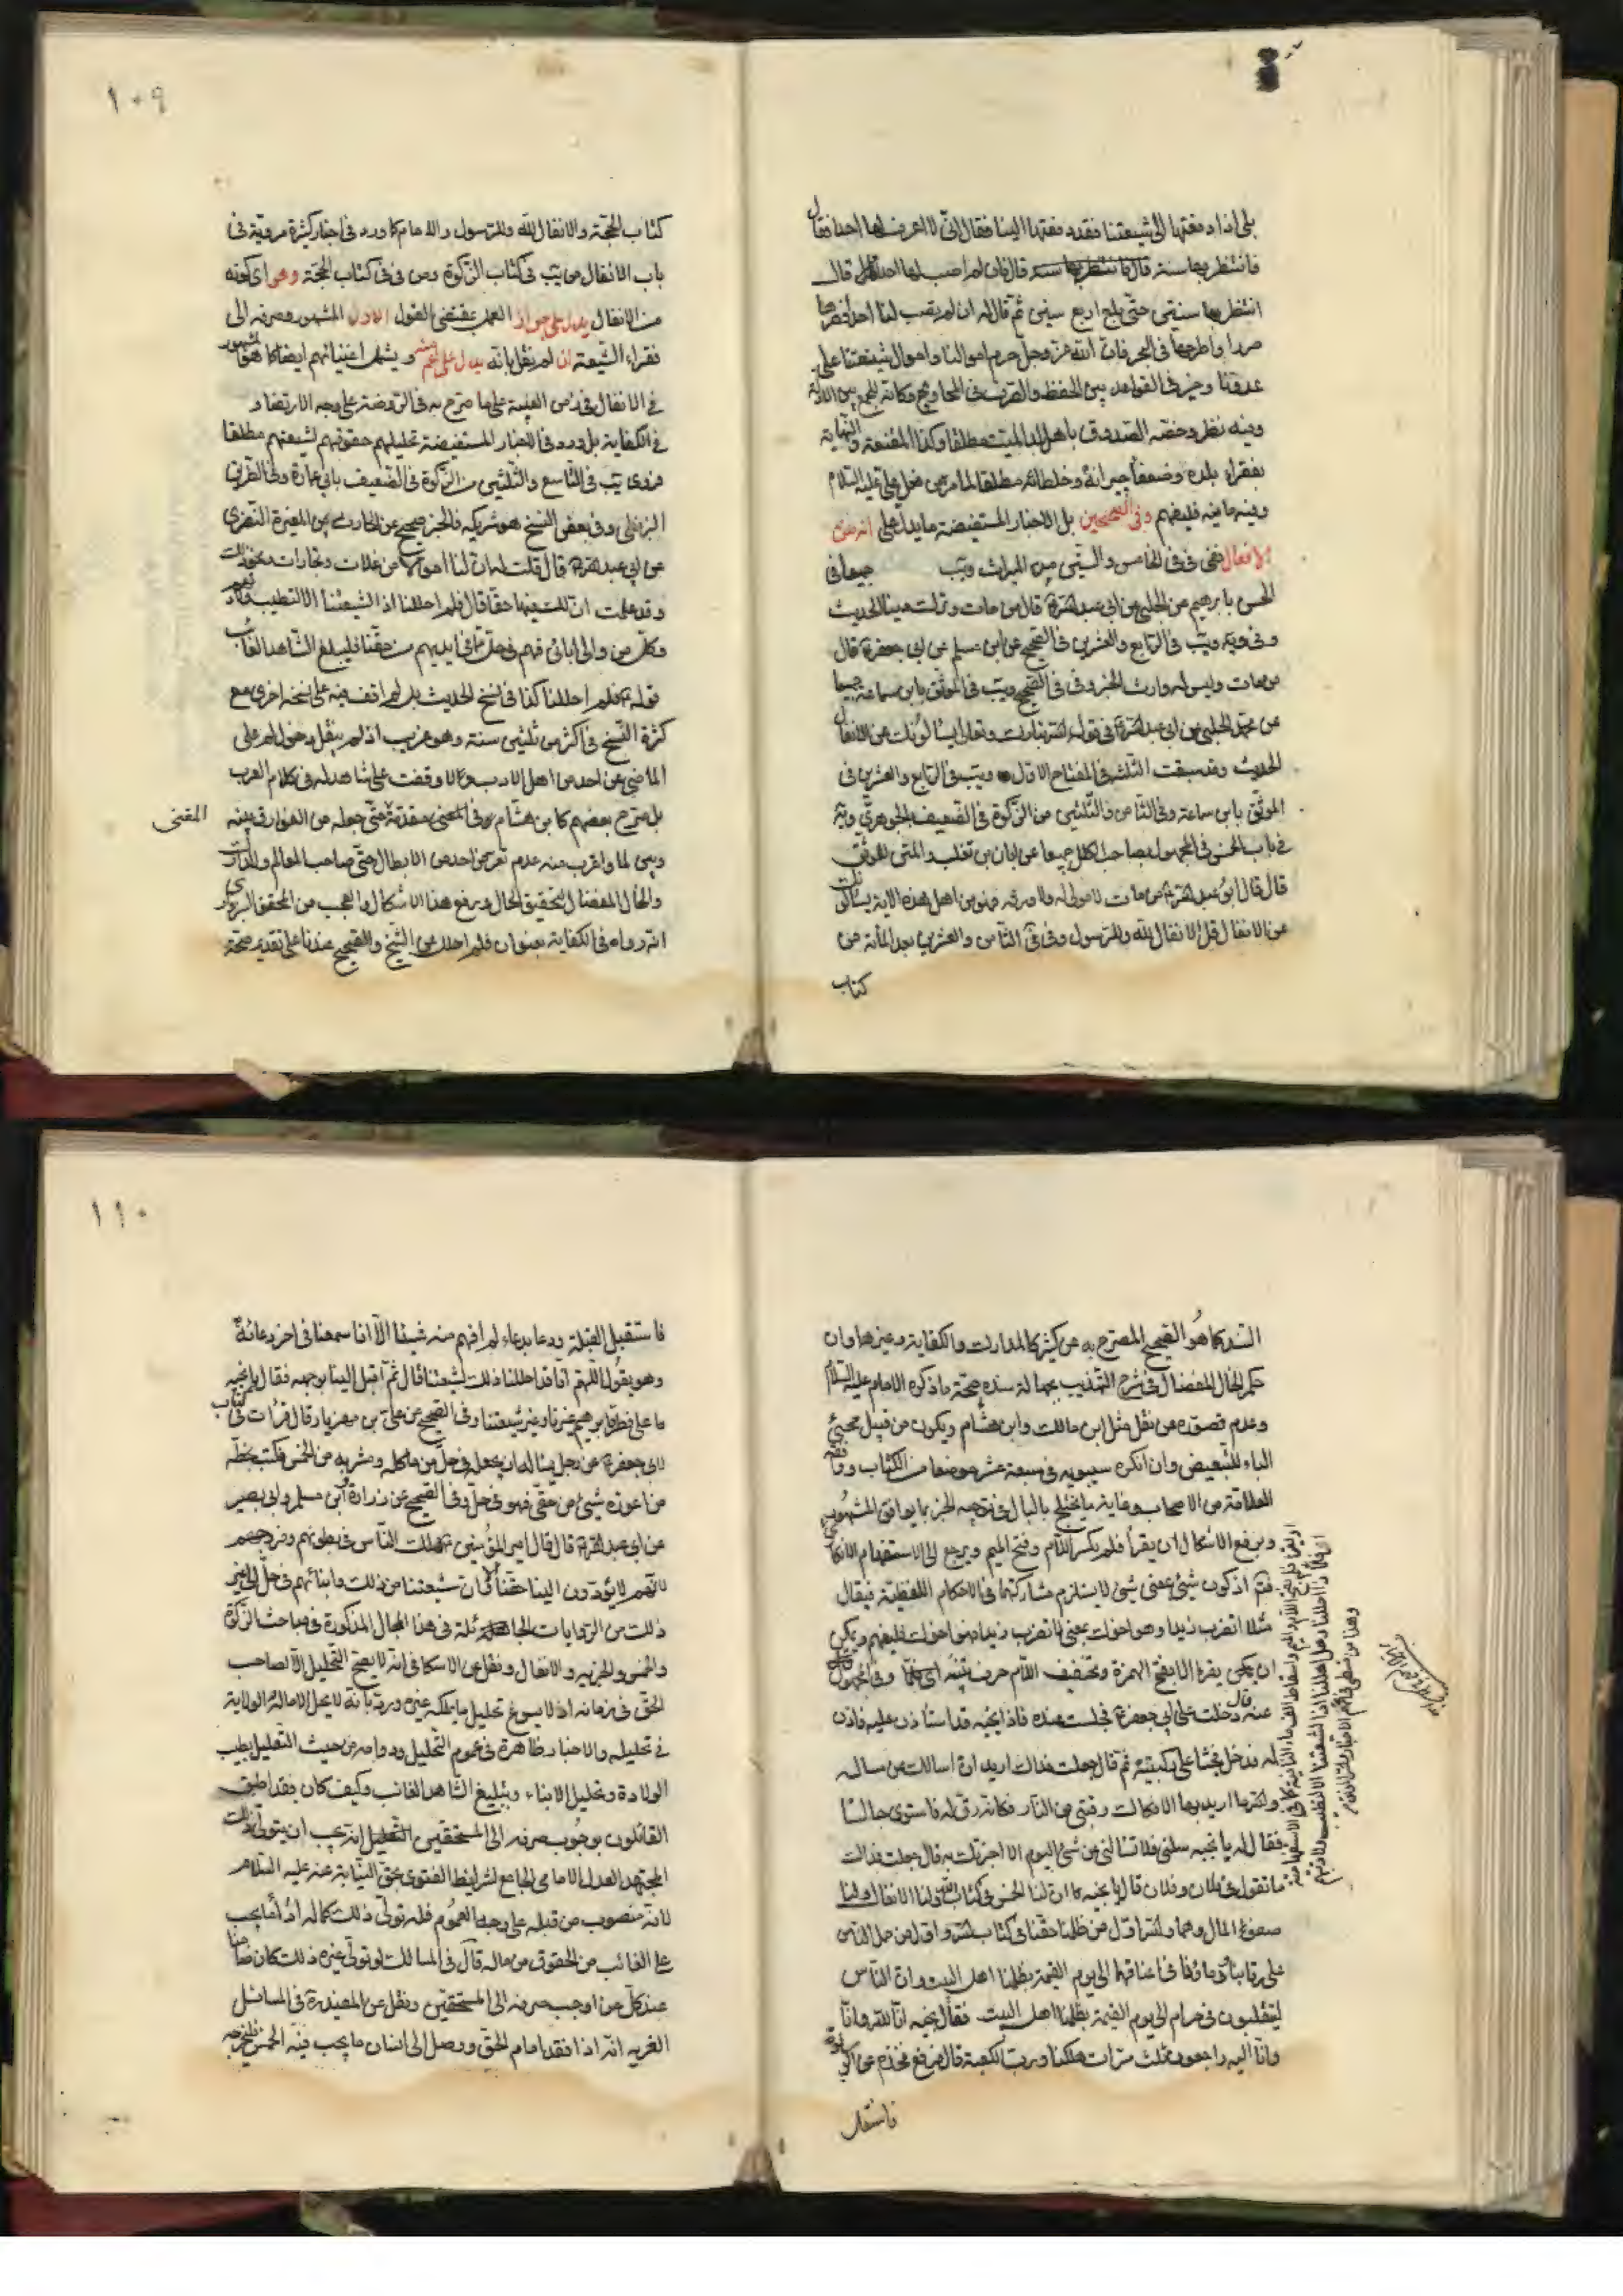 بلى اذا دفعتها الى شيعتنا فقد دفعتها الينا فقال انى لا اعرف لها احدا فقال
فانتظر بها سنة قال فان لم اصب لها احدا قال
انتظر بها سنتين حتى بلغ اربع سنين ثم قال له ان لم تصب لنا احدا فصرها
صررا واطرحها فى البحر فان الله عز وجل حرم اموالنا واموال شيعتنا على
عدونا وخير فى القواعد بين الحفظ والصرف فى المحاويج وكانه للجمع بين الادلة
وفيه نظر وخصه الصدوق باهل بلد الميت مطلقا وكذا المقنعة والنهاية
بفقراء بلده وضعفاء جيرانه وخلطائه مطلقا لما مر من فعل على عليه السلام
وفيه ما فيه فليفهم وفى الصحيحين بل الاخبار المستفيضة ما يدل على انه من
الانفال ففى فى فى الخامس والستين من الميراث ويب جميعا فى
الحسن بابرهيم عن الحلبى عن ابى عبد الله ع قال من مات وترك دينا الحديث
وفى ويب فى الرابع والعشرين فى الصحيح عن ابن مسلم عن ابى جعفر ع قال
من مات وليس له وارث الخبر وفى فى الصحيح ويب فى الموثق بابن سماعة جميعا
عن محمد الحلبى عن ابى عبد الله ع فى قول الله تبارك وتعالى يسألونك عن الانفال
الحديث وقد سبقت الثلثة فى المفتاح الاول ويب فى الرابع والعشرين فى
الموثق بابن سماعة وفى الثامن والثلثين من الزكوة فى الضعيف
قال قال ابو عبد الله ع من مات لا مولى له ولا ورثة فهو من اهل هذه الاية يسألونك
عن الانفال قل الانفال لله وللرسول وفى فى الثامن والعشرين بعد المأتة من
كتاب
١٠٩
كتاب الحجة والانفال لله وللرسول وللامام كما ورد فى اخبار كثيرة مروية فى
باب الانفال من يب فى كتاب الزكوة ومن فى فى كتاب الحجة وهو اى كونه
من الانفال يدل على جواز العمل بمقتضى القول الاول المشهور وصرفه الى
فقراء الشيعة ان لم نقل بانه يدل على اعم منه ويشمل اغنيائهم ايضا كما هو المشهور
فى الانفال فى زمن الغيبة على ما صرح به فى الروضة على وجه الارتضاء و
فى الكفاية بل ورد فى الاخبار المستفيضة تحليلهم حقوقهم لشيعتهم مطلقا
فروى يب فى التاسع والثلثين من الزكوة فى الضعيف بابى عمارة وفى الطريق
البزنطى وفى بعض النسخ هو شريكه فالخبر صحيح عن الحارث بن المغيرة النصرى
عن ابى عبد الله ع قال قلت له ان لنا اموالا من غلات وتجارات ونحو ذلك
وقد علمت ان لك فيها حقا قال فلم احللنا اذا لشيعتنا الا لتطيب ولادتهم
وكل من والى ابائى فهم فى حل مما فى ايديهم من حقنا فليبلغ الشاهد الغائب
قوله ع فلم احللنا كذا فى نسخ الحديث بل لم اقف فيه على نسخة اخرى مع
كثرة النسخ فى اكثر من ثلثين سنة وهو غريب اذ لم ينقل دخول لم على
الماضى عن احد من اهل الادب ولا وقفت على شاهد له فى كلام العرب
بل صرح بعضهم كابن هشام فى المغنى حتى جعله من الفوارق بينه
المغنى
وبين لما واغرب منه عدم تعرض احد من الابطال حتى صاحب المعالم والمدارك
والخال المفضال لتحقيق الحال ورفع هذا الاشكال والعجب من المحقق السبزوارى
انه رواه فى الكفاية بعنوان فلم احل من الشيخ والصحيح عندنا على تقدير صحة
السند كما هو الصحيح المصرح به عن كثير كالمدارك والكفاية وغيرها وان
حكم الخال المفضال فى شرح التهذيب بجهالة سنده صحة ما ذكره الامام عليه السلام
وعدم قصوره عن نقل مثل ابن مالك وابن هشام ويكون من قبيل مجيئ
الباء للتبعيض وان انكره سيبويه فى سبعة عشر موضعا من الكتاب ووافقه
العلامة من الاصحاب وغاية ما يختلج بالبال فى توجيه الخبر بما يوافق المشهور
ويرفع الاشكال ان يقرأ فلم بكسر اللام وفتح الميم ويرجع الى الاستفهام الانكارى
فتم اذ كون شيئ بمعنى شيئ لا يستلزم مشاركتهما فى الاحكام اللفظية فيقال
مثلا اتضرب زيدا وهو اخوك بمعنى لا تضرب زيدا وهو اخوك فليفهم ويمكن
ان يقرء الا بفتح الهمزة وتخفيف اللام حرف تنبيه
عنه قال دخلت على ابى جعفر ع فجلست عنده فاذا نجيه قد استأذن عليه فاذن
له فدخل فجثا على ركبتيه ثم قال جعلت فداك اريد ان اسالك عن مسالة
والله ما اريد بها الا فكاك رقبتى من النار فكانه رق له فاستوى جالسا
فقال له يا نجيه سلنى فلا تسألنى عن شئ اليوم الا اخبرتك به قال جعلت فداك
ما تقول فى فلان وفلان قال يا نجيه كان لنا الخمس فى كتاب الله ولنا الانفال ولنا
صفو المال وهما والله اول من ظلمنا حقنا فى كتاب الله واول من حمل الناس
على رقابنا ودماؤنا فى اعناقهما الى يوم القيمة بظلمنا اهل البيت وان الناس
ليتقلبون فى حرام الى يوم القيمة بظلمنا اهل البيت فقال نجيه انا لله وانا
وانا اليه راجعون ثلث مرات هلكنا ورب الكعبة قال فرفع فخذه عن الوسادة
فاستقبل
١١٠
فاستقبل القبلة ودعا بدعاء لم افهم منه شيئا الا انا سمعنا فى اخر دعائه
وهو يقول اللهم انا قد احللنا ذلك لشيعتنا قال ثم اقبل الينا بوجهه فقال يا نجيه
ما على فطرة ابرهيم غيرنا وغير شيعتنا وفى الصحيح عن على بن مهزيار قال قرأت فى كتاب
لابى جعفر ع من رجل يسأله ان يجعله فى حل من ماكله ومشربه من الخمس فكتب بخطه
من اعوزه شيئ من حقى فهو فى حل وفى الصحيح عن زرارة وابن مسلم وابى بصير
عن ابى عبد الله ع قال قال امير المؤمنين ع هلك الناس فى بطونهم وفروجهم
لانهم لا يؤدون الينا حقنا الا وان شيعتنا من ذلك وابنائهم فى حل الى غير
ذلك من الروايات فى هذا المجال المذكورة فى مباحث الزكوة
والخمس والجزيه والانفال ونقل عن الاسكافى انه لا يصح التحليل الا لصاحب
الحق فى زمانه اذ لا يسوغ تحليل ما يملكه غيره ورد بانه لا يحل الا ماله الولاية
فى تحليله والاخبار ظاهرة فى عموم التحليل ودوامه من حيث التعليل بطيب
الولادة وتحليل الابناء وبتبليغ الشاهد الغائب وكيف كان فقد اطبق
القائلون بوجوب صرفه الى المستحقين انه يجب ان يتولى ذلك
المجتهد العدل الامامى الجامع لشرايط الفتوى بحق النيابة عنه عليه السلام
لانه منصوب من قبله على وجه العموم فله تولى ذلك كماله اداء ما يجب
على الغائب من الحقوق من ماله قال فى المسالك لو تولى غيره ذلك كان ضامنا
عند كل من اوجب صرفه الى المستحقين ونقل عن المفيد فى المسائل
الغريه انه اذا فقد امام الحق ووصل الى انسان ما يجب فيه الخمس فليخرجه